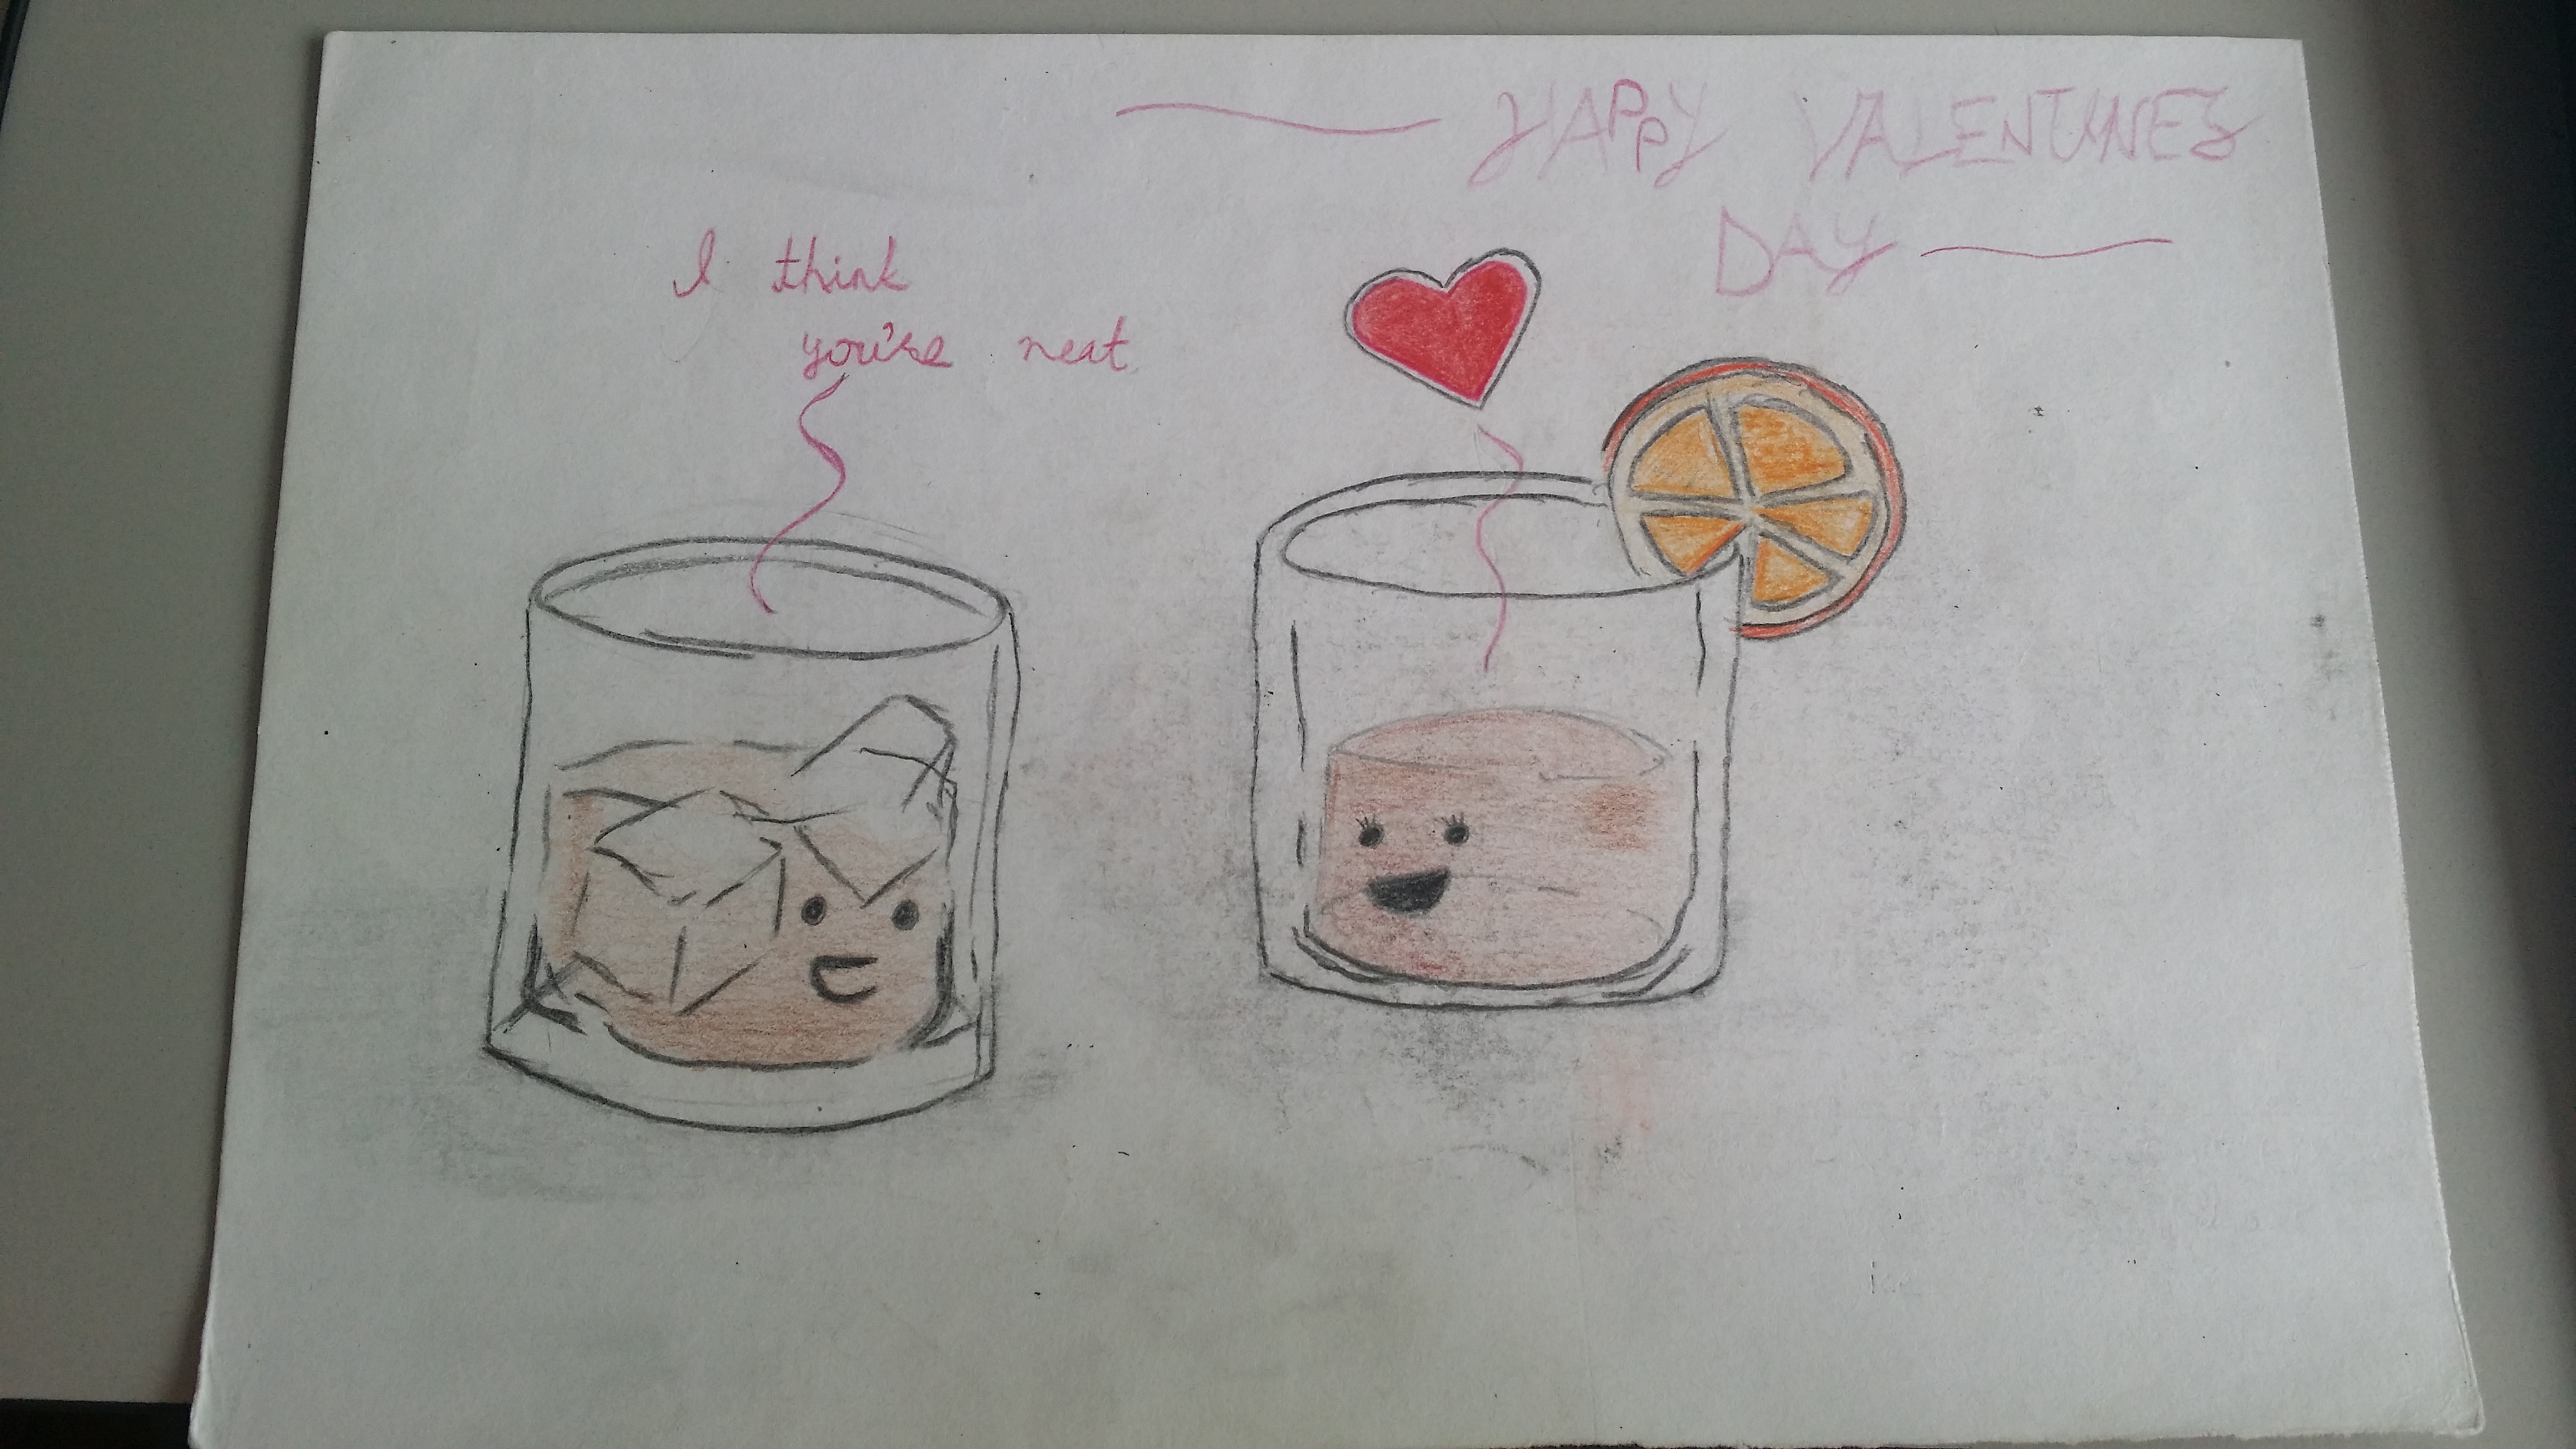 HAPPY VALENTINES
DAY
I think
you're neat